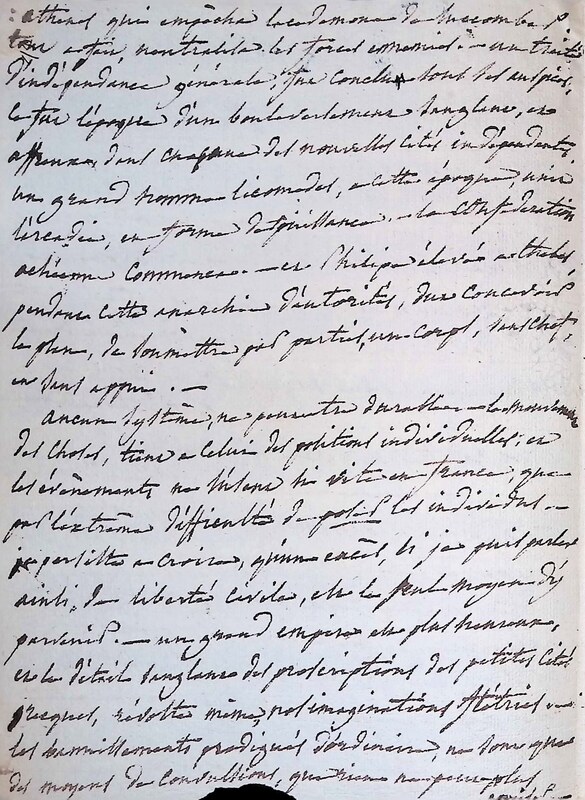 athenes qui empêcha lacedemone de succomber. P.
tour a tour, neutralisa les forces ennemies. — un traité
d'indépendance générale, fut conclu sous ses auspices,
ce fut l'époque d'un bouleversement sanglant, et
affreux, dans chacune des nouvelles cités indépendantes,
un grand homme licomedes, a cette époque, unit
l'arcadie, en forme de puissance. — la confédération
achéenne commença. — et Philippe élevé a thebes,
pendant cette anarchie d'autorités, dut concevoir
le plan, de soumettre par parties, un corps, sans chef,
et sans appui. —
aucun système, ne peut être durable. — le mouvement
des choses, tient a celui des positions individuelles; et
les événements ne s'usent si vite en france, que
par l'extrême difficulté de poser les individus. —
je persiste a croire, qu'un excès, si je puis parler
ainsi, de liberté civile, est le seul moyen d'y
parvenir. — un grand empire est plus heureux,
et le détail sanglant des proscriptions des petites cités
grecques, révolte même, nos imaginations flétries. —
les bannissements prodigués d'ordinaire, ne sont que
des moyens de convulsions, que rien ne peut plus